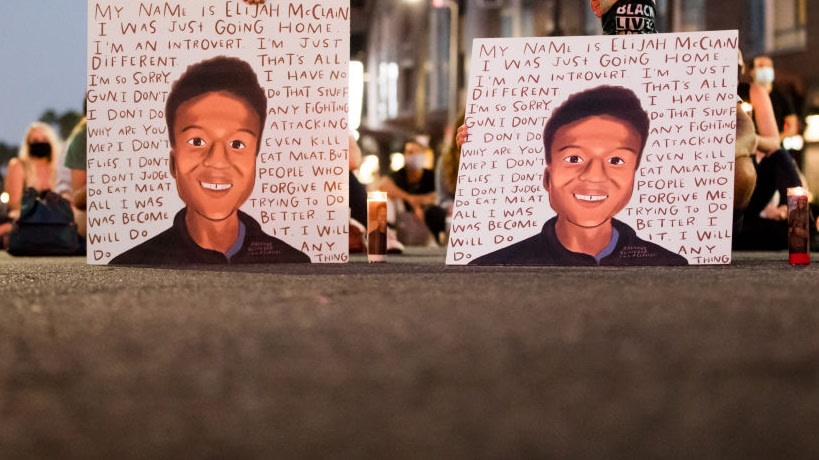 MY NAME IS ELIJAH MCCLAIN
I WAS JUST GOING HOME.
I'M AN INTROVERT. I'M JUST
DIFFERENT. THAT'S ALL.
I'M SO SORRY. I HAVE NO
GUN. I DON'T DO THAT STUFF
I DON'T DO ANY FIGHTING
WHY ARE YOU ATTACKING
ME? I DON'T EVEN KILL
FLIES. I DON'T EAT MEAT. BUT
I DON'T JUDGE PEOPLE WHO
DO EAT MEAT FORGIVE ME.
ALL I WAS TRYING TO DO
WAS BECOME BETTER I
WILL DO IT. I WILL
DO ANY
THING
BLACK
LIVES
MY NAME IS ELIJAH MCCLAIN
I WAS JUST GOING HOME.
I'M AN INTROVERT. I'M JUST
DIFFERENT. THAT'S ALL.
I'M SO SORRY. I HAVE NO
GUN. I DON'T DO THAT STUFF
I DON'T DO ANY FIGHTING
WHY ARE YOU ATTACKING
ME? I DON'T EVEN KILL
FLIES. I DON'T EAT MEAT. BUT
I DON'T JUDGE PEOPLE WHO
DO EAT MEAT FORGIVE ME.
ALL I WAS TRYING TO DO
WAS BECOME BETTER I
WILL DO IT. I WILL
DO ANY
THING